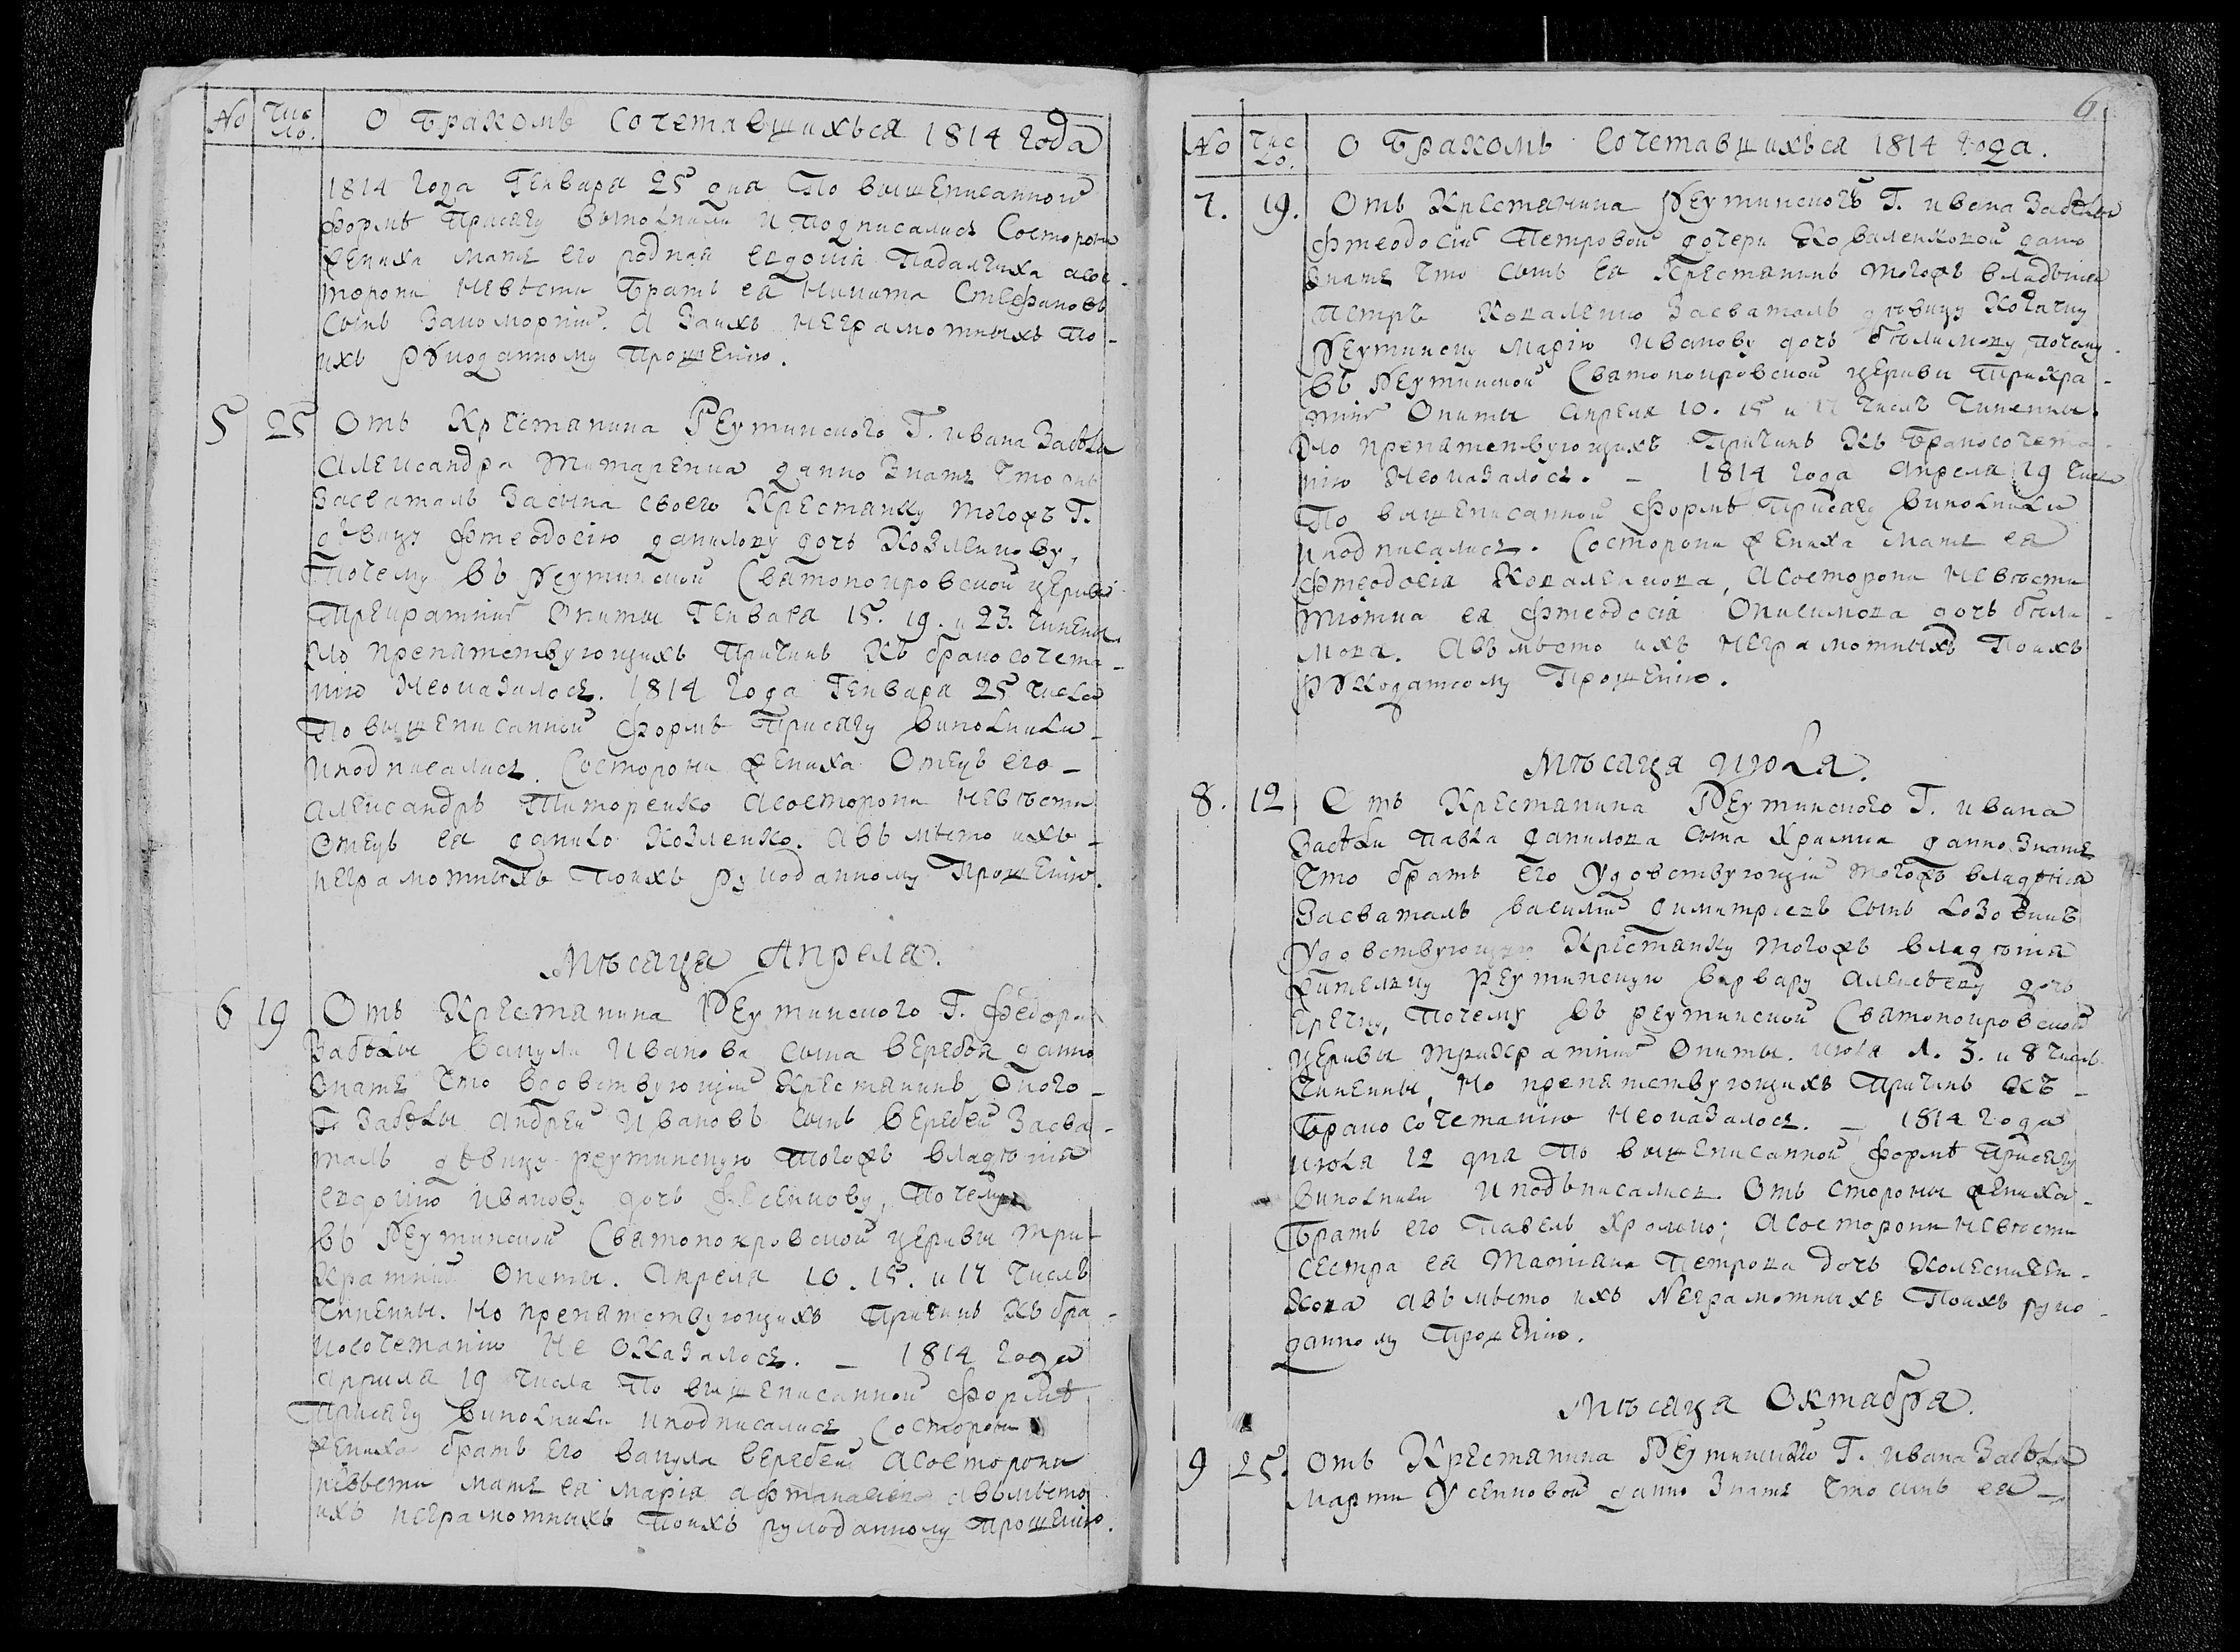 No Чис
ло. О бракомъ сочетавшихься 1814 года
1814 года Генваря 25 дня По вышеписанной
формѣ Присягу выполнили и Подписались Состорони
жениха мать его родная евдокія Падалчиха асос-
торони невѣсти братъ ея Никита Стефановъ
сынъ Заиоморній. А Заихъ неграмотныхъ По-
ихъ рукоданному Прошенію.
5 25 Отъ Крестянина Реутинского Г. ивана Забѣли
Александра Титаренка данно Знать Что онъ
Засваталъ Засына своего Крестянку тогожъ Г.
дѣвицу Фтеодосію данилову дочь Козленкову,
Почему въ Реутинской Святопокровской церкви
Трикратніе Опиты Генваря 15. 19. и 23. чинены
Но препятствующихъ Причинъ Къ бракосочета-
нію Неоказалось. 1814 года Генваря 25 числа
По вышеписанной формѣ Присягу виполнили
иподписались. Состорони жениха Отецъ его -
александръ Титоренко Асосторони невѣсти
Отецъ ея данило Козленко. Авъ мѣсто ихъ -
неграмотныхъ Поихъ рукоданному Прошенію.
Мѣсяца Апреля.
6 19 Отъ Крестянина Реутинского Г. федора
Забѣлы вакули Иванова сына веребья данно
Знать Что вдовствующій Крестянинъ Оного -
Г. Забѣлы андрей Ивановъ сынъ веребей Засва-
талъ дѣвицу реутинскую тогожъ владѣнія
евдокію иванову дочь Фесенкову, Почему
въ Реутинской Святопокровской церквы три-
Кратніе Опиты. Апреля 10. 15. и 17 числъ
чиненны. Но препятствующихъ Причинъ Къ бра-
косочетанію Не оказалось. - 1814 года
апреля 19 числа По вишеписанной формѣ
Присягу виполнили иподписались Состорони
жениха братъ его вакула веребей Асосторони
невѣсти мать ея марія афтанасиева авъмѣсто
ихъ неграмотныхъ Поихъ рукоданному Прошенію.
6
No Чис
ло. О бракомъ сочетавшихься 1814 года.
7. 19. Отъ Крестянина Реутинского Г. ивана Забѣли
Фтеодосіи Петровой дочери Коваленковой данно
Знать что сынъ ея Крестянинъ тогожъ владѣнія
Петръ Коваленко Засваталъ дѣвицу
Реутинску марію иванову дочь Почему
въ Реутинской Святопокровской церкви Трикра-
тніе Опиты апреля 10. 15 и 17 числъ чиненны.
Но препятствующихъ Причинъ Къ бракосочета-
нію Неоказалось. - 1814 года апреля 19 числа
По вышеписанной формѣ Присягу виполнили
иподписались. Состорони жениха мать ея
Фтеодосія Коваленкова, Асосторони невѣсти
тіотка ея Фтеодосія Онисимова дочь бѣли-
мова. Авъ мѣсто ихъ неграмотныхъ Поихъ
рукодатному Прошенію.
Мѣсяца июля.
8. 12 Отъ Крестянина Реутинского Г. ивана
Забѣли павла данилова сына Хромка данно Знать
Что братъ его удовствующій тогожъ владѣнія
Засваталъ василій димитріевъ сынъ
удовствующую Крестянку тогожъ владѣнія
жителку Реутинскую варвару алексѣеву дочь
Почему въ реутинской Святопокровской
церквы трикратніе Опиты. июля 1. 3. и 8 числъ
чиненны, Но препятствующихъ Причинъ Къ -
бракосочетанію неоказалось. - 1814 года
июля 12 дня По вышеписанной формѣ Присягу
виполнили иподъписались. Отъ стороны жениха -
братъ его Павелъ Хромко; Асосторони невѣсти
сестра ея Татіяна Петрова дочь Колесничен-
кова авъ мѣсто ихъ Неграмотныхъ Поихъ руко-
данному Прошенію.
Мѣсяца Октабря.
9 25. Отъ Крестянина Реутинского Г. ивана Забѣли
марти Усенковой данно Знать Что синъ ея -